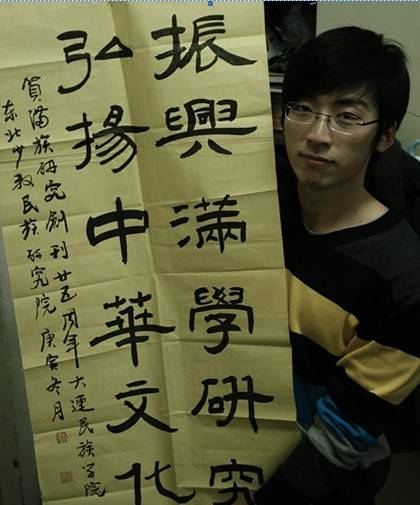 振興滿學研究
弘揚中華文化
賀滿族研究創刊廿五周年 大連民族学院
东北少数民族研究院 庚寅冬月